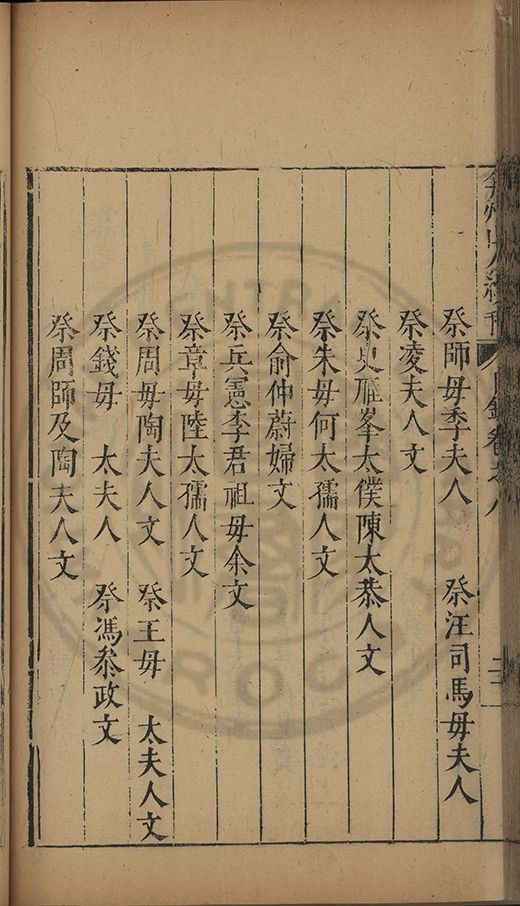 弇州山人續稿 目錄卷之八
祭師毋季夫人 祭汪司馬毋夫人
祭凌夫人文
祭史雁峯太僕陳太恭人文
祭朱毋何太孺人文
祭俞仲蔚婦文
祭兵憲李君祖毋余文
祭章毋陸太孺人文
祭周毋陶夫人文 祭王毋 太夫人文
祭錢毋 太夫人 祭馮叅政文
祭周師及陶夫人文